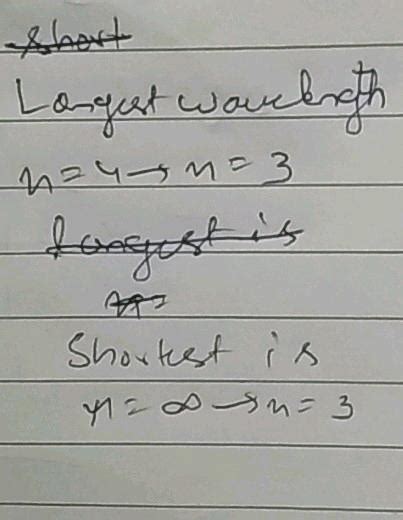 short
Longest wavelength
n = 4 → n = 3
longest is
n =
Shortest is
n = ∞ → n = 3